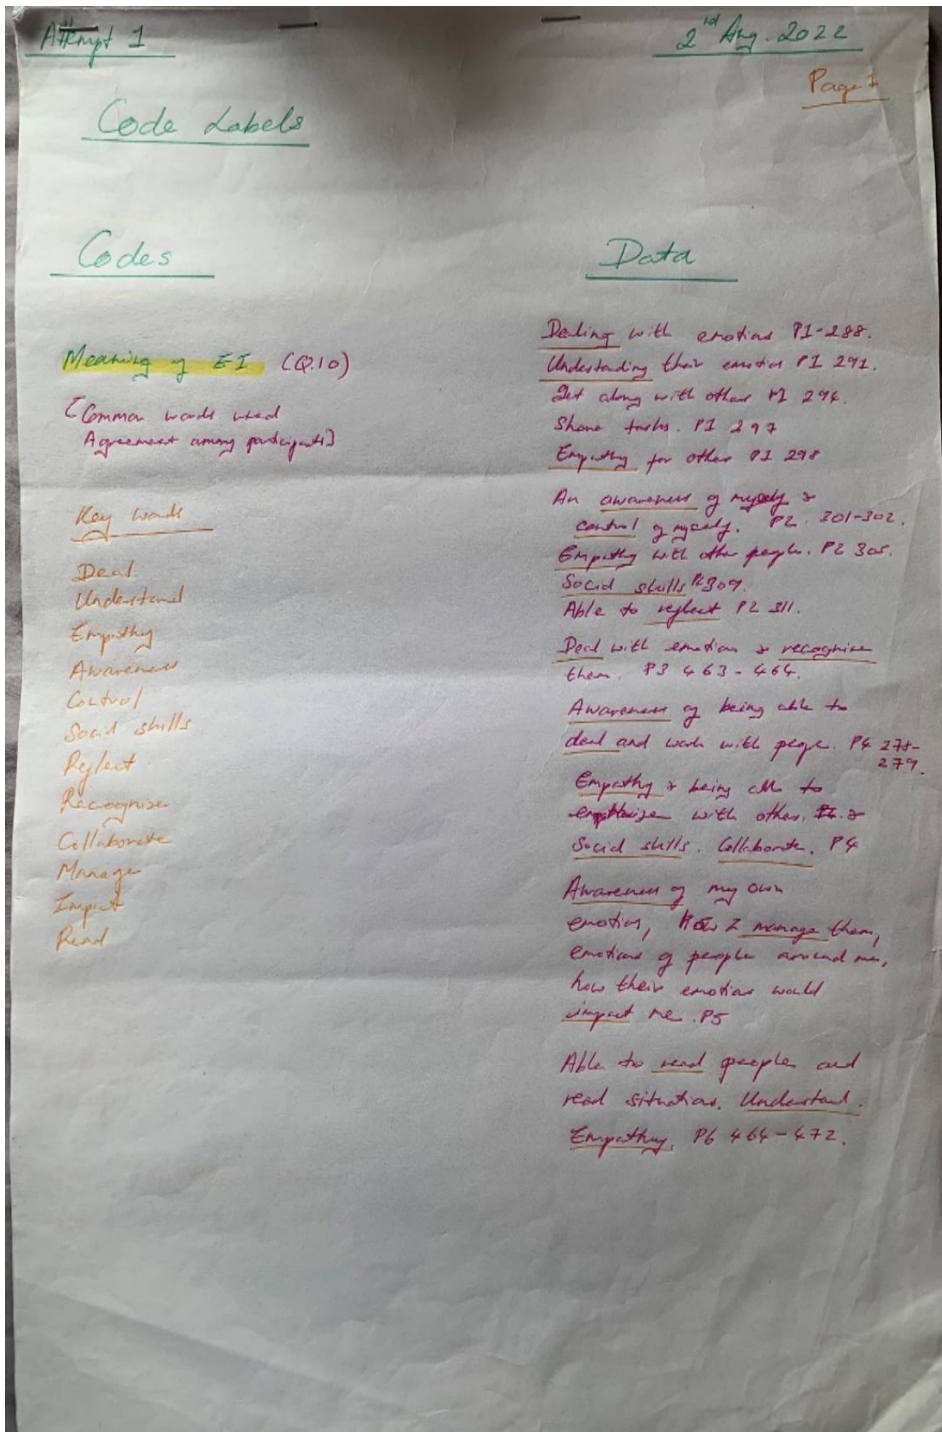 Attempt 1
2nd Aug. 2022
Page 1
Code Labels
Codes
Meaning of EI (Q.10)
[Common words used
Agreement among participants]
Key words
Deal
Understand
Empathy
Awareness
Control
Social skills
Reflect
Recognise
Collaborate
Manage
Impact
Read
Data
Dealing with emotions P1-288.
Understanding their emotion P1 291.
Get along with others P1 294.
Share tasks. P1 297
Empathy for other P1 298
An awareness of myself &
control of myself. P2 301-302.
Empathy with other people. P2 305.
Social skills P2 309.
Able to reflect P2 311.
Deal with emotion & recognise
them. P3 463-464.
Awareness of being able to
deal and work with people. P4 278-
279.
Empathy & being able to
empathize with other. &
Social skills. Collaborate. P4
Awareness of my own
emotion, How I manage them,
emotions of people around me,
how their emotions would
impact me. P5
Able to read people and
read situations. Understand.
Empathy. P6 464-472.